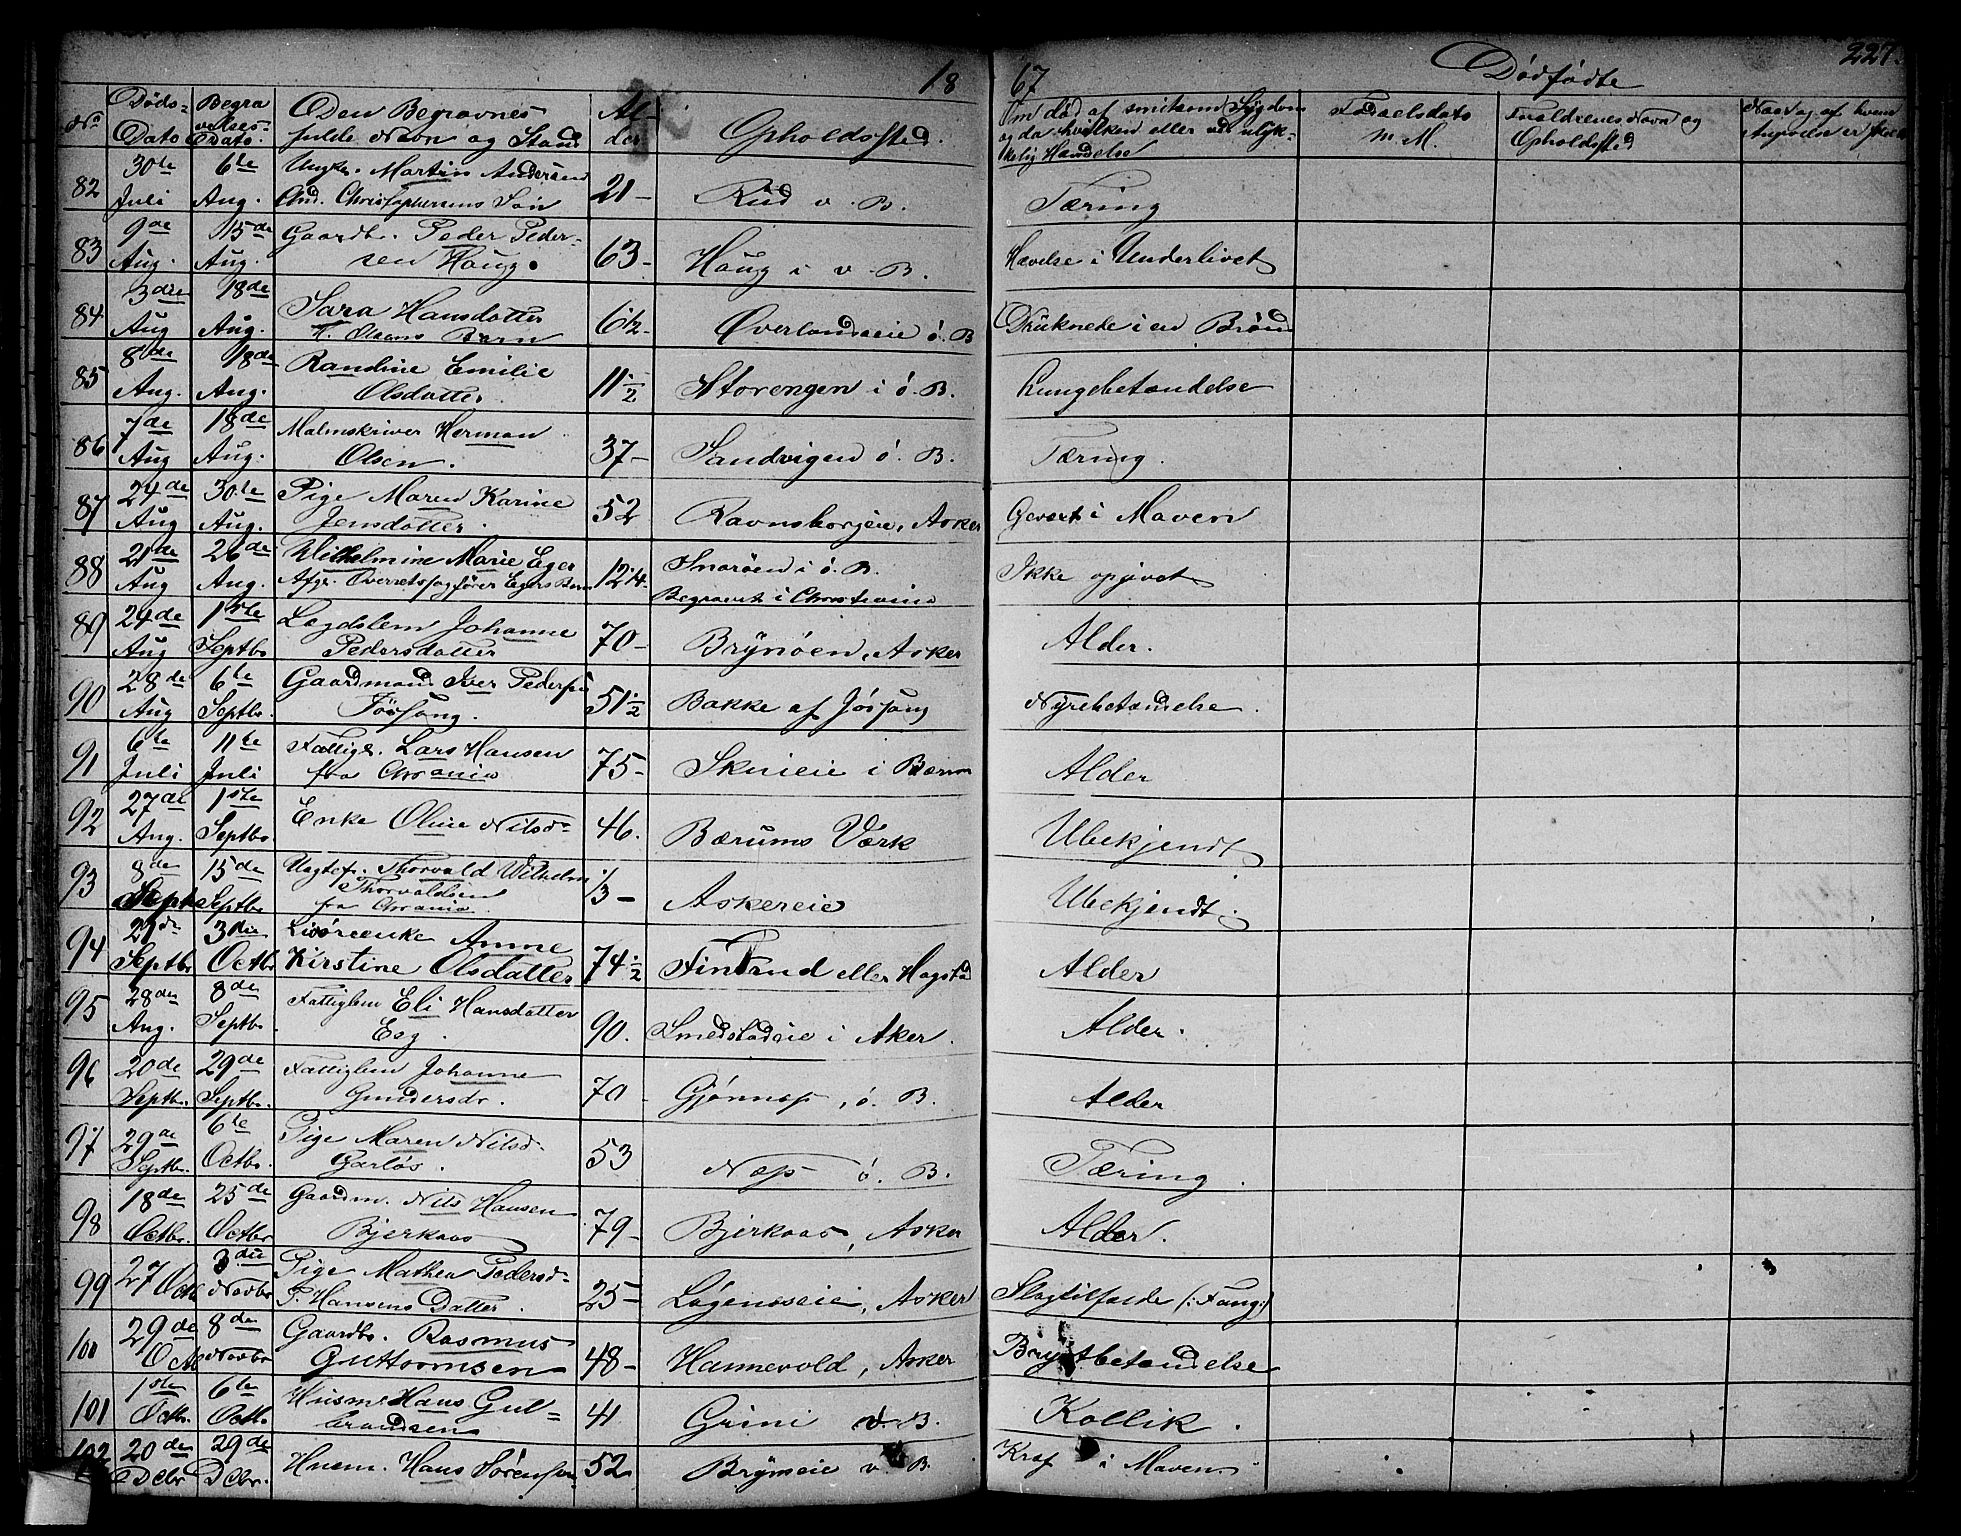 18 67 Dødfødte 227.
No Døds-Dato Begravelses-Dato. Den Begravnes fulde Navn og Stand Alder Opholdssted. Om død af smitsom Sygdom og da hvilken eller ved ulykkelig Hændelse Fødselsdato m. M. Forældrenes Navn og Opholdssted
82 30te Juli 6te Aug. Ungk. Martin Andersen And. Christophersens Søn 21- Rud v. B. Tæring
83 9de Aug. 15de Aug. Gaardbr. Peder Pedersen Haug. 63- Haug i v. B. Hævelse i Underlivet
84 3die Aug 18de Aug. Sara Hansdatter H. Olsens Barn 6 1/2- Øverlandseie ö. B Druknede i en Brønd
85 8de Aug. 18de Aug. Randine Emilie Olsdatter 11 1/2 Storengen i ö. B. Lungebetændelse
86 7de Aug 18de Aug. Malmskriver Herman Olsen. 37- Sandvigen ö. B. Tæring.
87 24de Aug 30te Aug. Pige Maren Karine Jensdatter. 52 Ravnsborgeie, Asker Gevext i Maven
88 21de Aug 26de Aug. Wilhelmine Marie Eger Afg. Overretssagfører Egers Barn 12 1/4. Snarøen i ö. B. Begravet i Christiania Ikke opgivet
89 24de Aug 1ste Septbr Lægdslem Johanne Pedersdatter 70- Brynøen, Asker Alder.
90 28de Aug 6te Septbr. Gaardmand Iver Pedersen Jössang. 51 1/2 Bakke af Jøssang Nyrebetændelse.
91 6te Juli 11te Juli Fattigl. Lars Hansen fra Chrania 75- Skuieie i Bærum Alder
92 27de Aug. 1ste Septbr. Enke Oline Nilsd- 46. Bærums Værk Ubekjendt
93 8de Septbr 15de Septbr. Thorvald Wilhelm Thorvaldsen fra Chrania. 1/3- Askereie Ubekjendt.
94 29de Septbr 3die Octbr Anne Kirstine Olsdatter 74 1/2 Finsrud eller Hagstad Alder
95 28de Aug. 8de Septbr Fattiglem Eli Hansdatter Eeg. 90. Smedstadeie i Aker. Alder.
96 20de Septbr. 29de Septbr. Fattiglem Johanne Gundersdr. 70 Gjønnæs, ö. B. Alder
97 29de Septbr. 6te Octbr. Pige Maren Nilsd. Garløs. 53 Næs ö. B. Tæring.
98 18de Octbr. 25de Octbr Gaardm. Nils Hansen Bjerkaas 79- Bjerkaas, Asker Alder.
99 27 Oct 3die Novbr Pige Mathea Pedersd- P. Hansens Datter. 25- Løgenæseie, Asker Slagtilfælde (:Fang:)
100 29de Oct 8de Novbr Gaardbr. Rasmus Guttormsen 48- Hannevold, Asker Brystbetændelse
101 1ste Octbr. 6te Octbr Husm: Hans Gulbrandsen 41 Grini v. B. Kollik.
102 20de Dcbr 29de Dcbr. Husm. Hans Sörensen 52 Brynseie v B. Kræf i Maven.